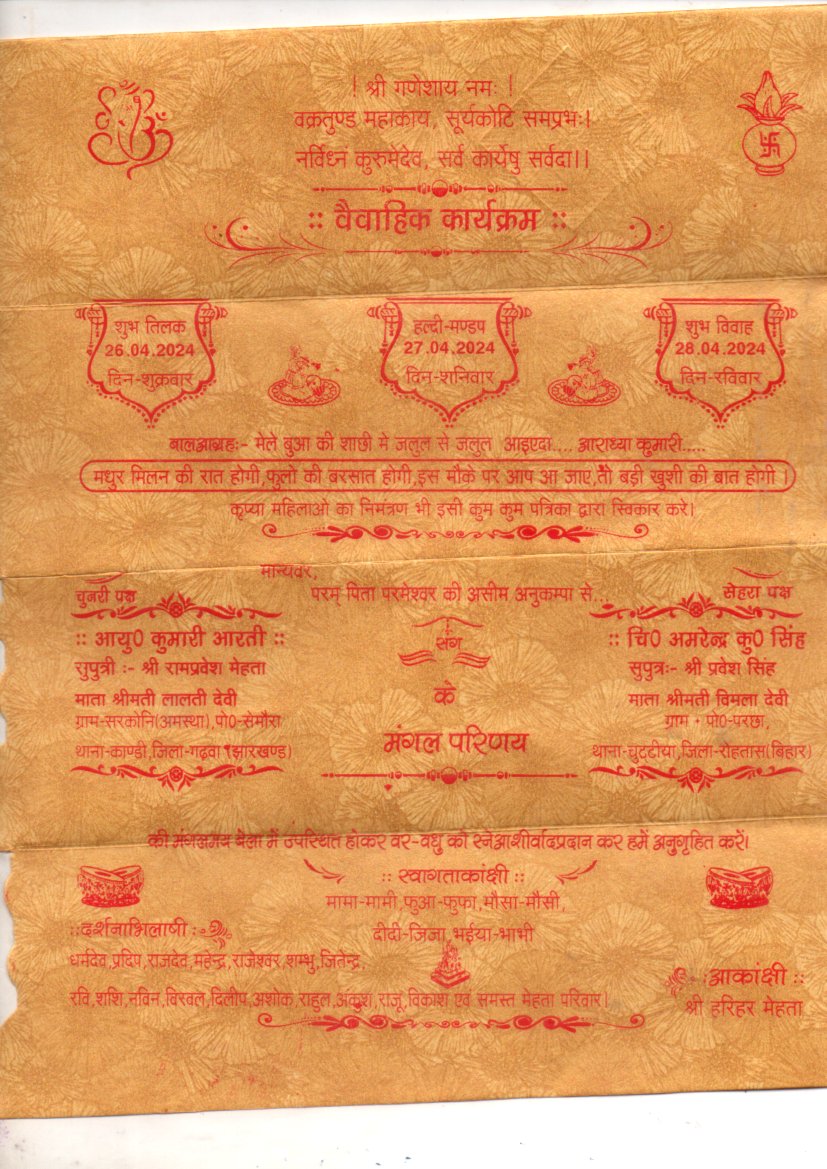 ! श्री गणेशाय नमः !
वक्रतुण्ड महाकाय, सूर्यकोटि समप्रभः।
नर्विध्नं कुरुमेदेव, सर्व कार्येषु सर्वदा।।
:: वैवाहिक कार्यक्रम ::
शुभ तिलक
26.04.2024
दिन-शुक्रवार
हल्दी-मण्डप
27.04.2024
दिन-शनिवार
शुभ विवाह
28.04.2024
दिन-रविवार
बालआग्रहः- मेले बुआ की शाछी मे जलुल से जलुल आइएदा.... आराध्या कुमारी.....
मधुर मिलन की रात होगी,फुलो की बरसात होगी,इस मौके पर आप आ जाए,तो बड़ी खुशी की बात होगी
कृप्या महिलाओ का निमत्रण भी इसी कुम कुम पत्रिका द्वारा स्विकार करे।
मान्यवर,
परम् पिता परमेश्वर की असीम अनुकम्पा से...
चुनरी पक्ष
:: आयु0 कुमारी आरती ::
सुपुत्री :- श्री रामप्रवेश मेहता
माता श्रीमती लालती देवी
ग्राम-सरकोनि(अमस्था),पो0-सेमौरा
थाना-काण्डी,जिला-गढ़वा (झारखण्ड)
संग
के
मंगल परिणय
सेहरा पक्ष
:: चि0 अमरेन्द्र कु0 सिंह
सुपुत्रः- श्री प्रवेश सिंह
माता श्रीमती विमला देवी
ग्राम + पो0-परछा,
थाना-चुटटीया,जिला-रोहतास(बिहार)
की मंगलमय बेला में उपस्थित होकर वर-वधु को स्नेआशीर्वादप्रदान कर हमें अनुगृहित करें।
:: स्वागताकांक्षी ::
मामा-मामी,फुआ-फुफा,मौसा-मौसी,
दीदी-जिजा,भईया-भाभी
::दर्शनाभिलाषी :
धर्मदेव,प्रदिप,राजदेव,महेन्द्र,राजेश्वर,शम्भु,जितेन्द्र,
रवि,शशि,नविन,विरवल,दिलीप,अशोक,राहुल,अंकुश,राजू,विकाश एवं समस्त मेहता परिवार।
:आकांक्षी ::
श्री हरिहर मेहता